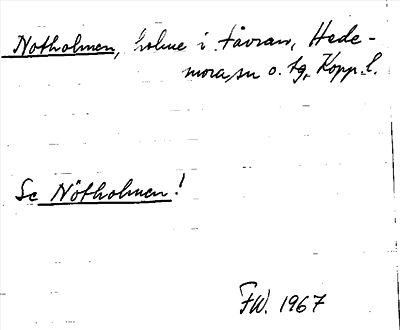 Notholmen, holme i Tåvran, Hede-
mora, sn o. tg, Kopp. l.
Se Nötholmen!
FW. 1967